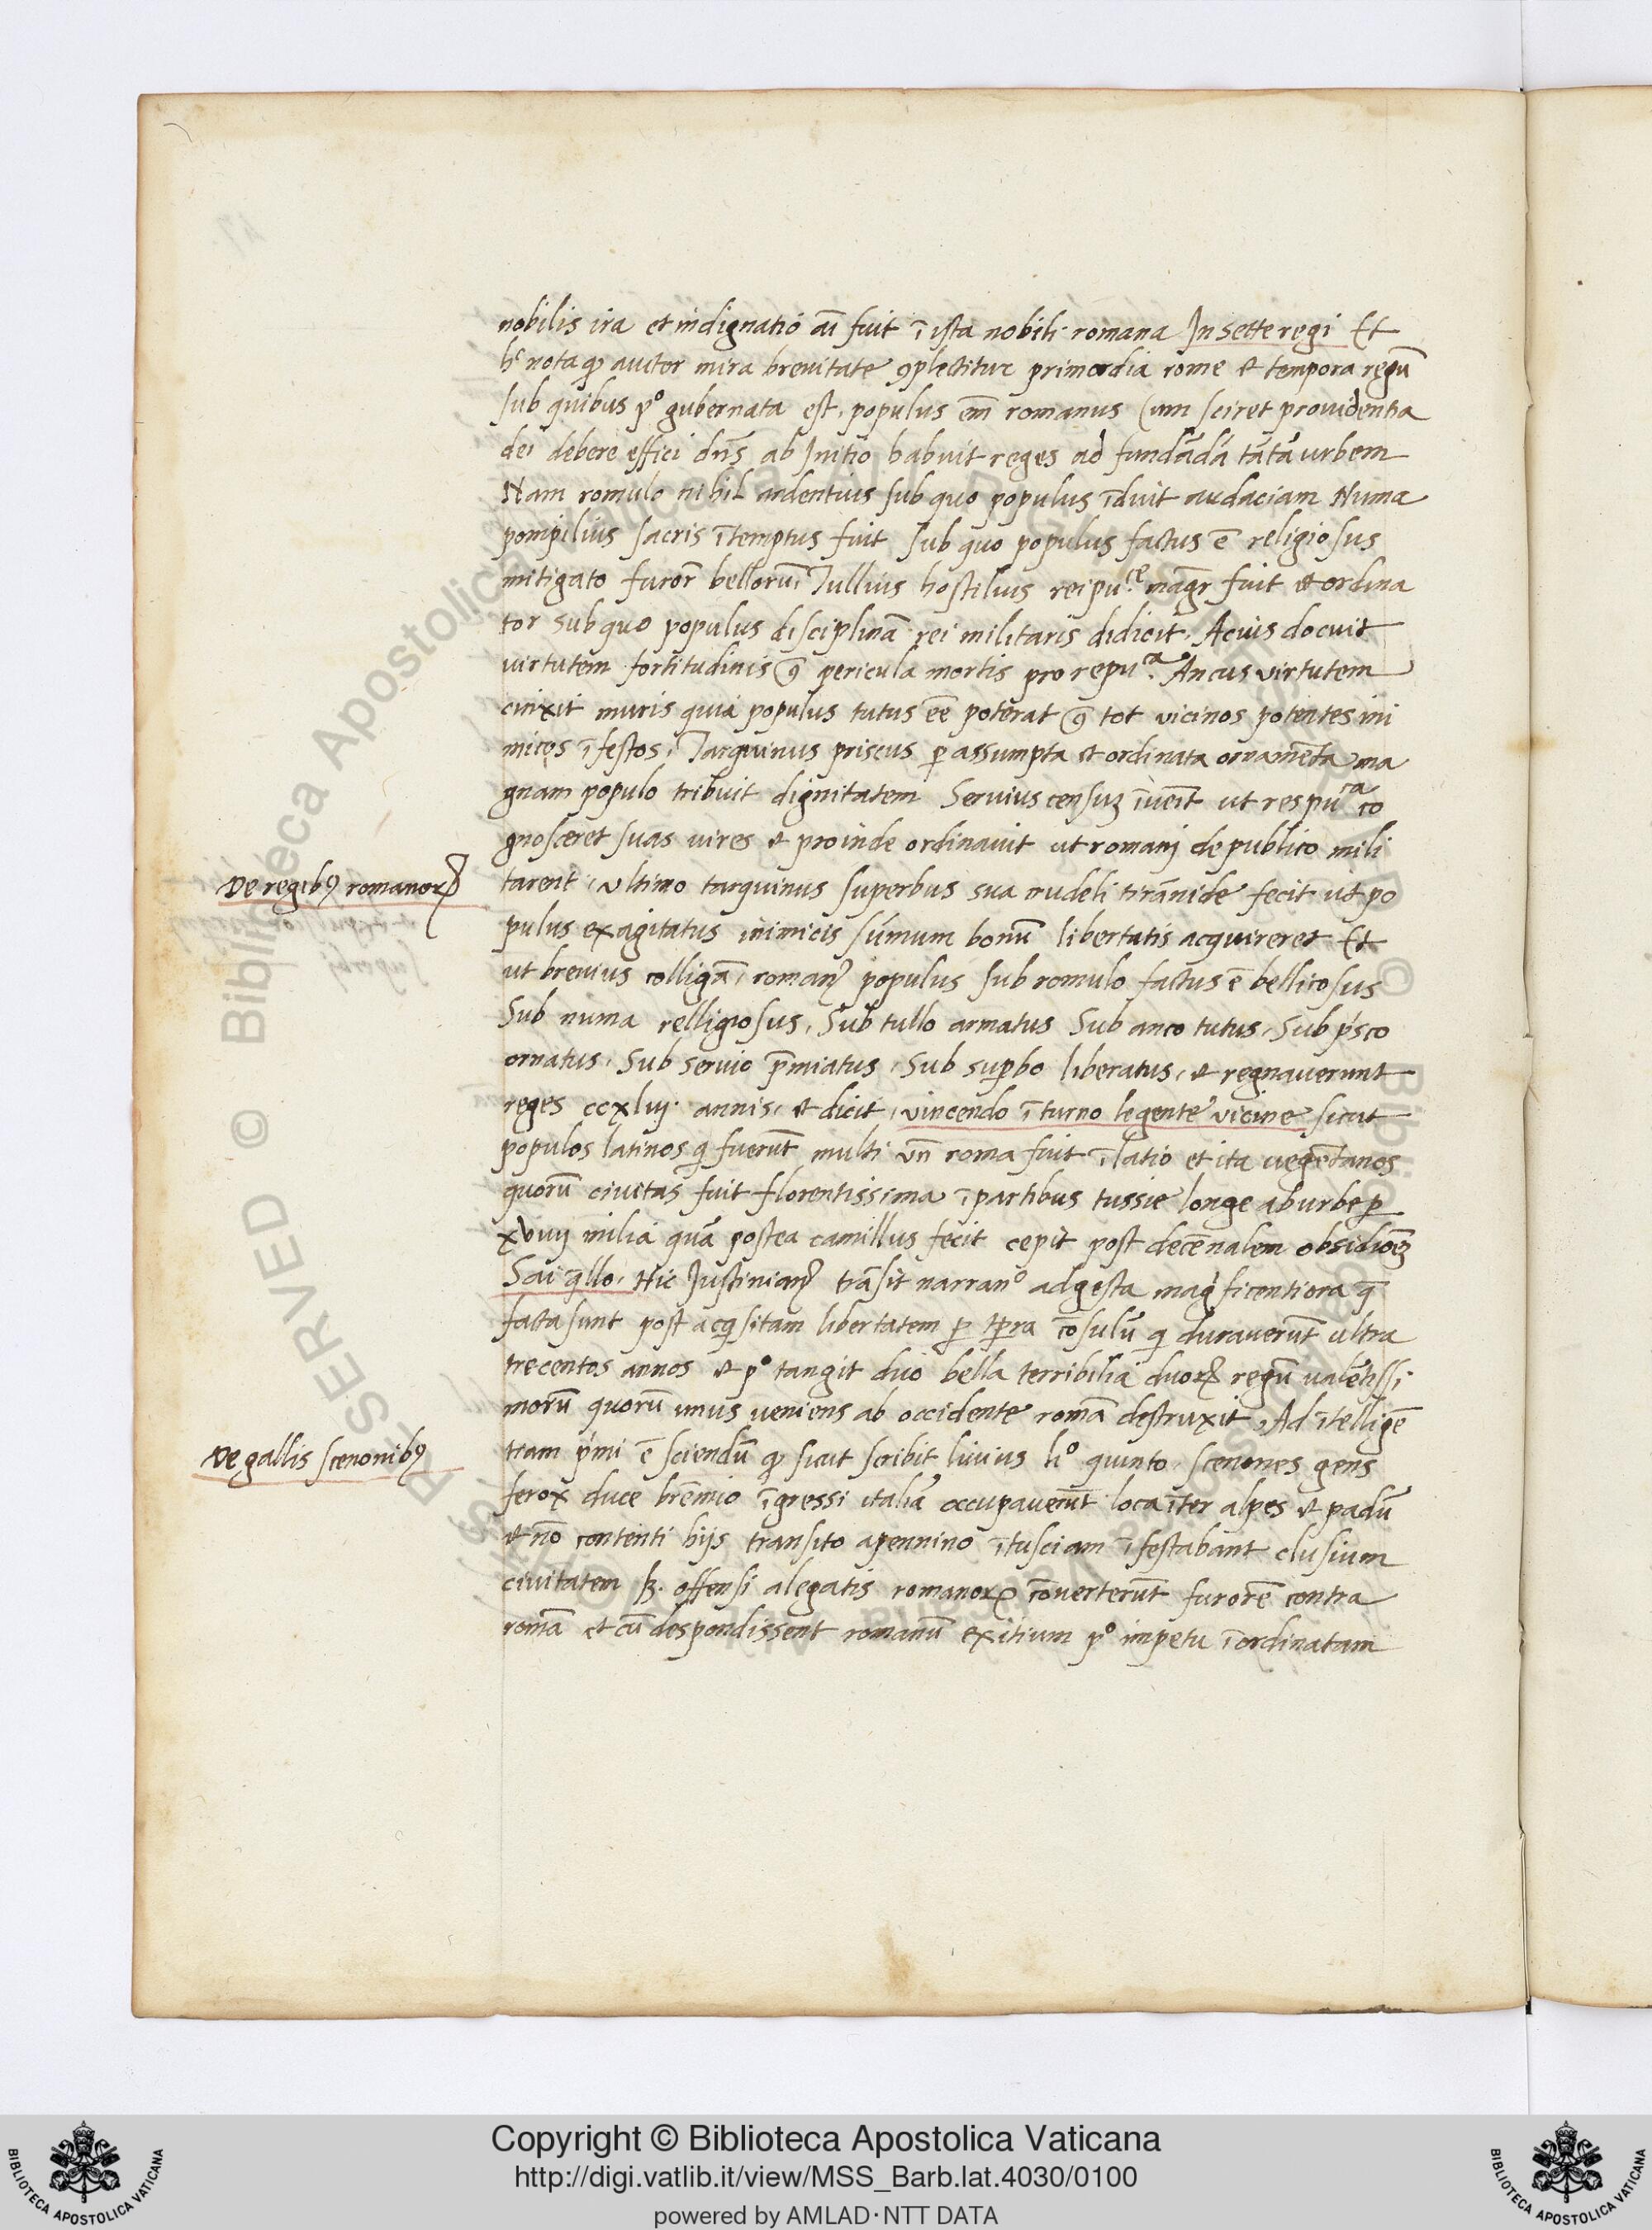 nobilis ira et indignatio aī fuit ī ista nobili romana In sette regi Et
hͥ nota ꝙ auctor mira breuitate ꝯplectitur primordia rome et tempora regū
sub quibus pͦ gubernata est. populus em̄ romanus Cum sciret prouidentia
dei debere effici dn̄s ab Initio habuit reges ad fundādā tātā urbem
Nam romulo nihil ardentius sub quo populus īduit audaciam Numa
pompilius sacris ītemptus fuit sub quo populus factus ē religiosus
mitigato furor̄ bellorum Tullius hostilius reipu.ᶜᵉ magr̄ fuit et ordina
tor sub quo populus disciplinā rei militaris didicit. Acuis docuit
uirtutem fortitudinis ꝯ̄ pericula mortis pro repu.ᶜᵃ Ancus uirtutem
cinxit muris quia populus tutus eē poterat ꝯ̄ tot vicinos potentes ini
micos īfestos. Tarquinus priscus ꝑ assumpta et ordinata ornamēta ma
gnam populo tribuit dignitatem Seruius censuꝫ īuēit ut respu.ᶜᵃ co
gnosceret suas uires et proinde ordinauit ut romani de publico mili
De regibꝰ romanoꝝ
tarent. ultimo tarquinus superbus sua crudeli tirānide fecit ut po
pulus exagitatus inimicis sūmum bonū libertatis acquireret Et
ut breuius colligā, romanꝰ populus sub romulo factus ē bellicosus
Sub numa relligiosus. Sub tullo armatus Sub anco tutus. Sub pͥsco
ornatus. Sub seruio p̄miatus. Sub suꝑbo liberatus. et regnauerunt
reges ccxliij. annis. et dicit, vincendo īturno legente vicine sicut
populos latinos q̇ fuerūt multi vn̄ roma fuit ī latio et ita uegētanos
quorū ciuitas fuit florentissima ī partibus tussie longe ab urbe ꝑ
xviij milia quā postea camillus fecit cepit post decēnalem obsidioēꝫ
Sai q̄llo. Hic Justinianꝰ trāsit narranͦ ad gesta magͥficentiora q̄
facta sunt post acq̇sitam libertatem ꝑ tꝑra cōsulū q̇ durauerūt ultra
trecentos annos et pͦ tangit duo bella terribilia duoꝝ regū ualētissi
morū quorū unus ueniens ab occidente romā destruxit. Ad ītelligē
De gallis scenonibꝰ
tiam pͥmi ē sciendū ꝙ sicut scribit liuius liͦ quinto. scenones gens
ferox duce brēnio īgressi italiā occupauerūt loca īter alpes et padū
et nō contenti hijs transito apennino ī tusciam īfestabant clusium
ciuitatem sꝫ. offensi a legatis romanoꝝ cōuerterūt furorē contra
romā et cū despondissent romanū exitium pͦ impetu īordinatam
Copyright © Biblioteca Apostolica Vaticana
http://digi.vatlib.it/view/MSS_Barb.lat.4030/0100
powered by AMLAD·NTT DATA
BIBLIOTECA APOSTOLICA VATICANA
BIBLIOTECA APOSTOLICA VATICANA